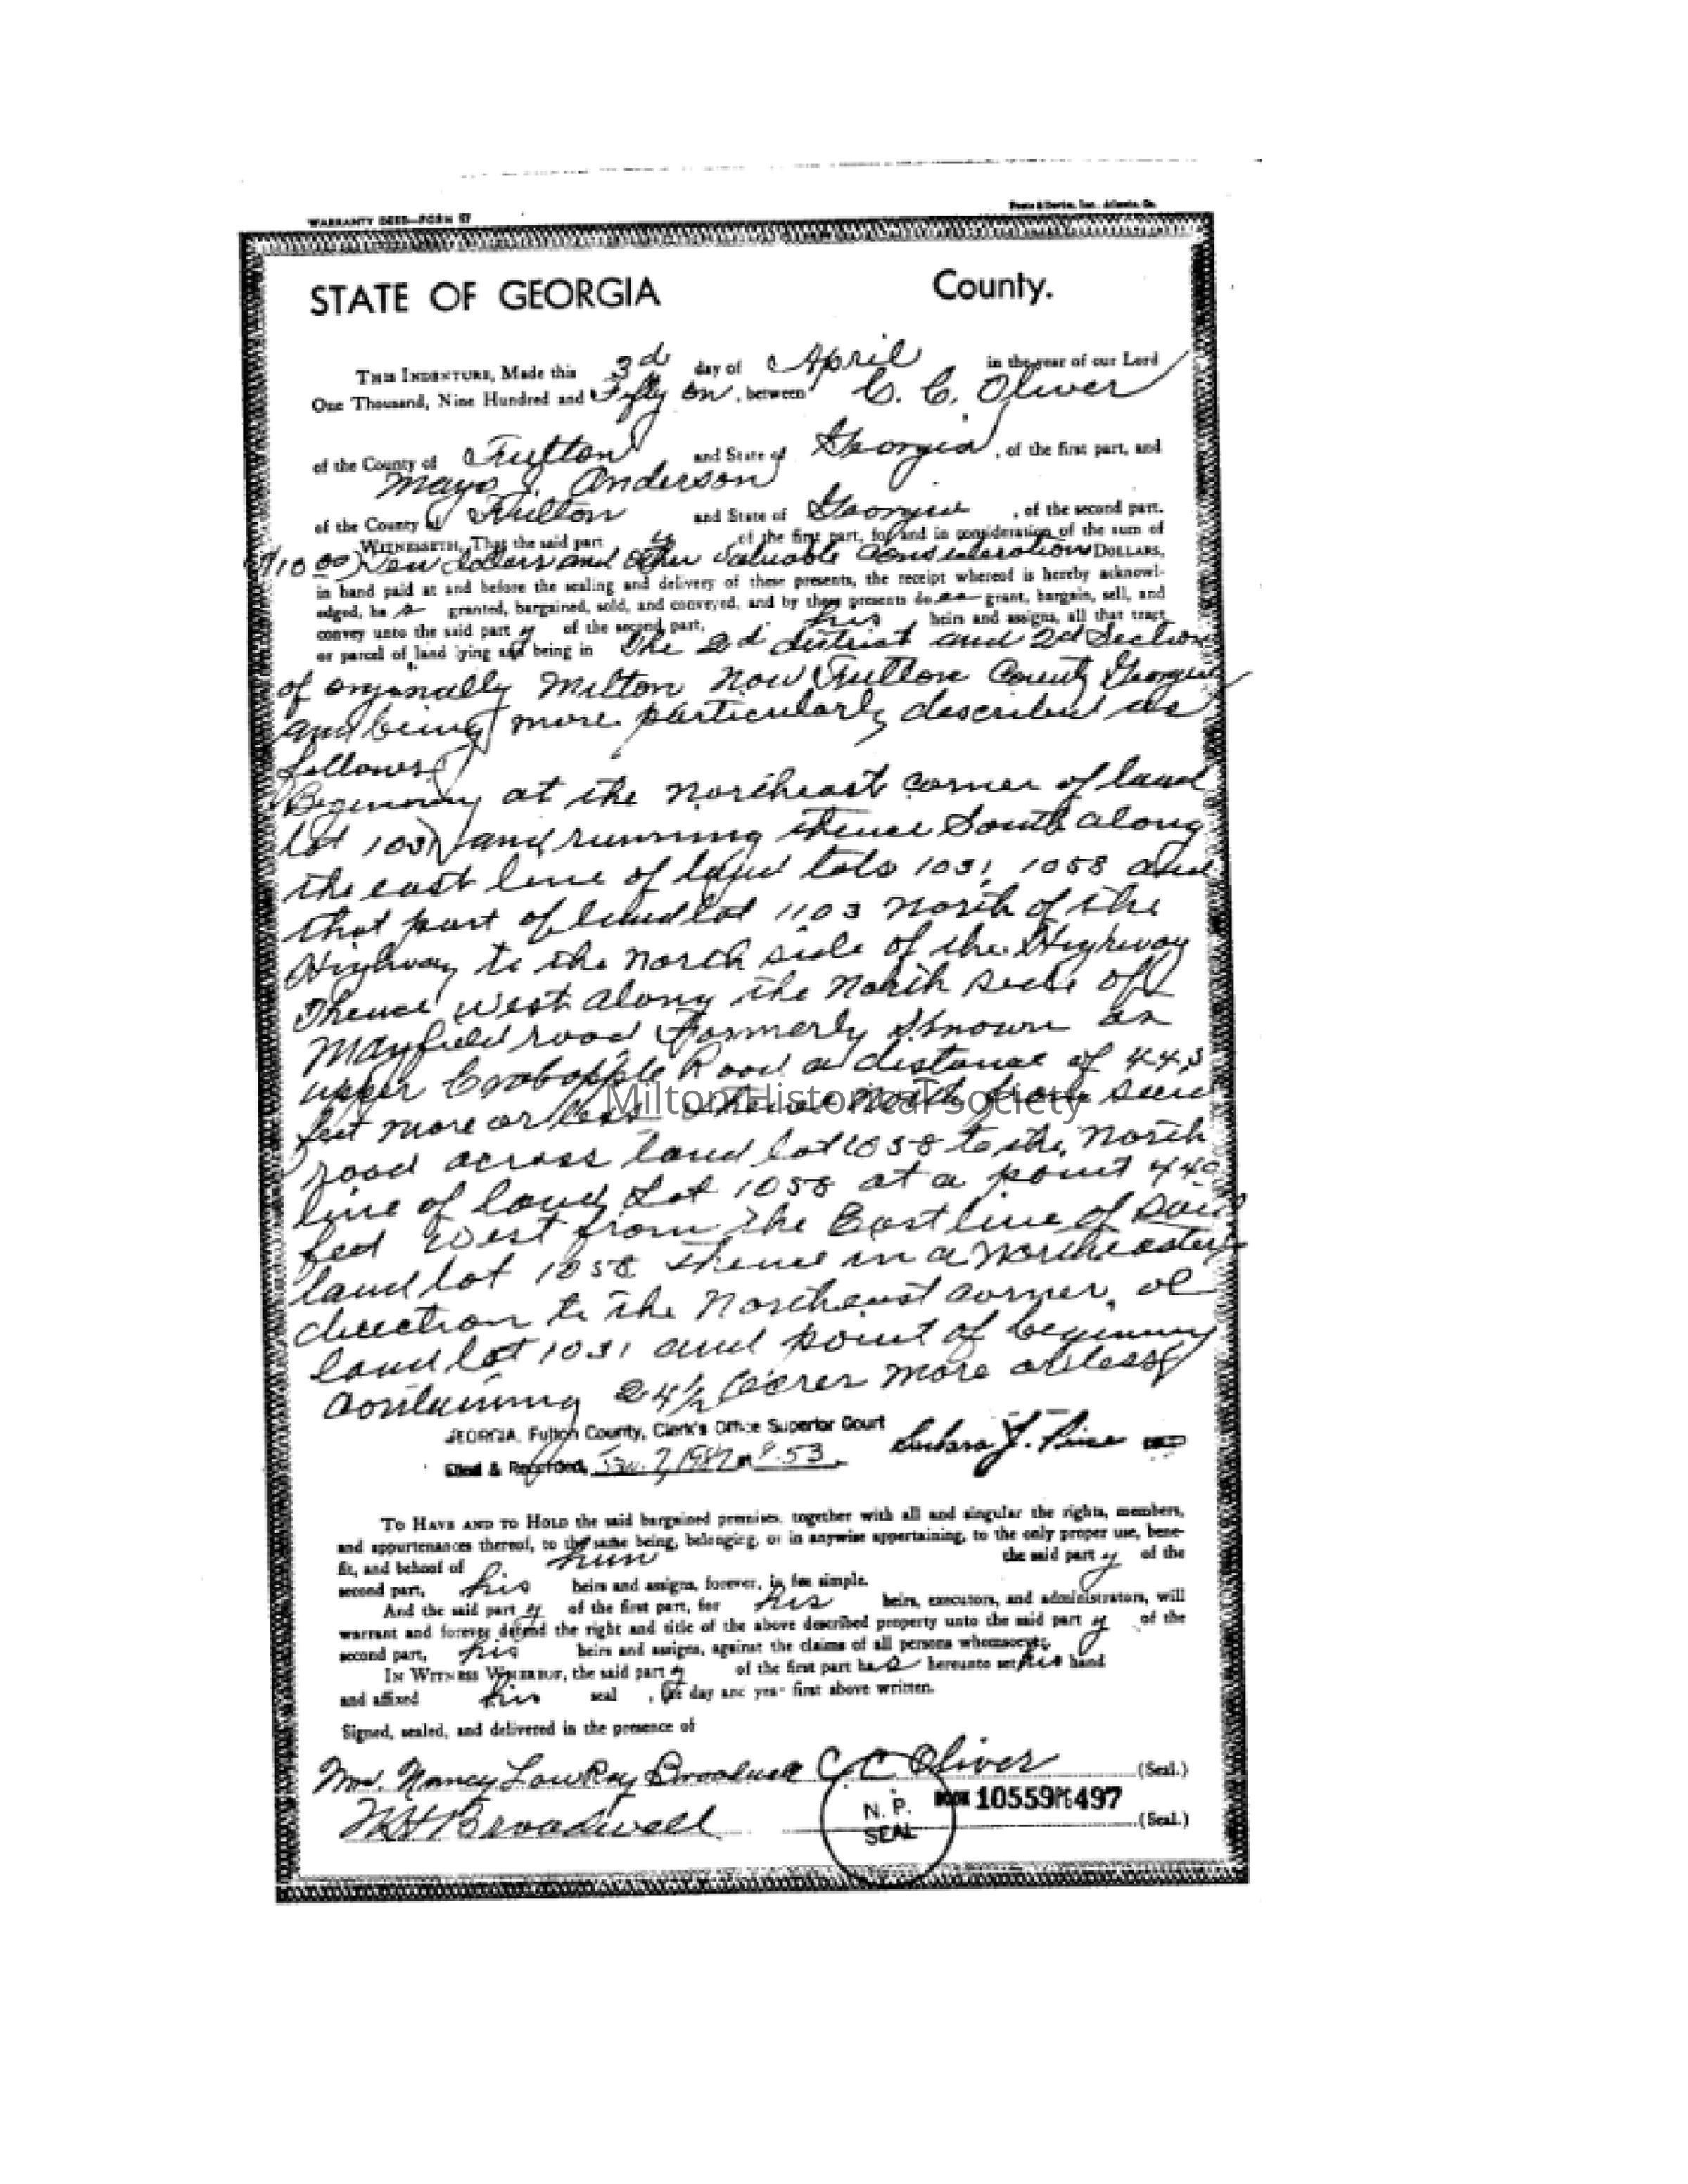 WARRANTY DEED—FORM 57
STATE OF GEORGIA County.
THIS INDENTURE, Made this 3d day of April in the year of our Lord
One Thousand, Nine Hundred and Fifty on, between C. C. Oliver
of the County of Fulton and State of Georgia, of the first part, and
Mayo J. Anderson
of the County of Fulton and State of Georgia, of the second part.
WITNESSETH, That the said part y of the first part, for and in consideration of the sum of
($10.00) Ten dollars and other valuable consideration DOLLARS,
in hand paid at and before the sealing and delivery of these presents, the receipt whereof is hereby acknowl-
edged, ha s granted, bargained, sold, and conveyed, and by these presents do es grant, bargain, sell, and
convey unto the said part y of the second part, his heirs and assigns, all that tract
or parcel of land lying and being in the 2d district and 2d Section
of orginally Milton Now Fulton County Georgia
and being more particularly described as
follows
Beginning at the Northeast corner of land
lot 1031 and running thence South along
the east line of land lots 1031, 1058 and
that part of land lot 1103 North of the
Highway to the North side of the Highway
Thence West along the North side of
Mayfield road Formerly known as
upper Crabapple Road a distance of 443
feet more or less Thence North from said
road across land lot 1058 to the North
line of land Lot 1058 at a point 440
feet West from the East line of said
land lot 1058 thence in a Northeasterly
direction to the Northeast corner, of
land lot 1031 and point of beginning
containing 24 1/2 acres more or less
GEORGIA, Fulton County, Clerk's Office Superior Court
Filed & Recorded, Jan. 7, 1987 at 9:53
TO HAVE AND TO HOLD the said bargained premises, together with all and singular the rights, members,
and appurtenances thereof, to the same being, belonging, or in anywise appertaining, to the only proper use, bene-
fit, and behoof of him the said part y of the
second part, his heirs and assigns, forever, in fee simple.
And the said part y of the first part, for his heirs, executors, and administrators, will
warrant and forever defend the right and title of the above described property unto the said part y of the
second part, his heirs and assigns, against the claims of all persons whomsoever.
IN WITNESS WHEREOF, the said part y of the first part ha s hereunto set his hand
and affixed his seal , the day and year first above written.
Signed, sealed, and delivered in the presence of
Mrs. Nancy LowRay Broadwell C C Oliver (Seal.)
N. P. SEAL BOOK 10559 PG 497
Broadwell (Seal.)
Milton Historical Society